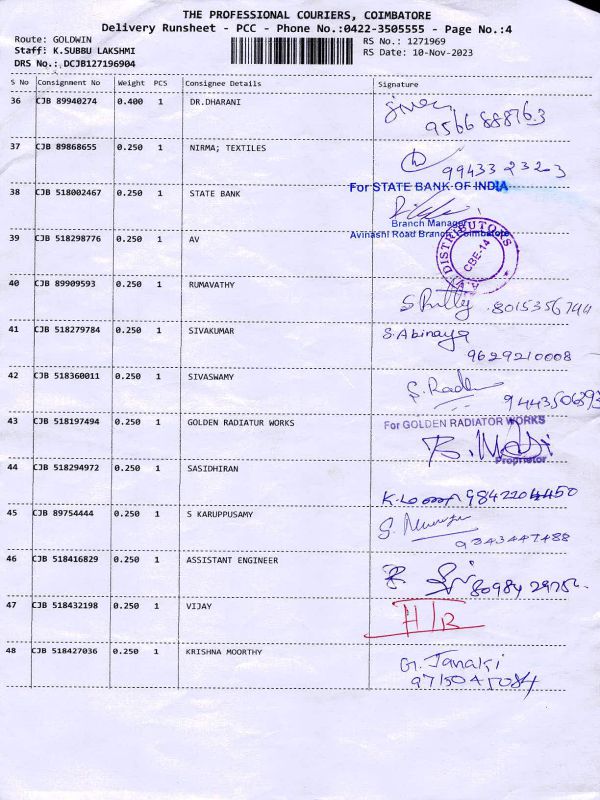 THE PROFESSIONAL COURIERS, COIMBATORE
Delivery Runsheet - PCC - Phone No.:0422-3505555 - Page No.:4
Route: GOLDWIN RS No.: 1271969
Staff: K.SUBBU LAKSHMI RS Date: 10-Nov-2023
DRS No.: DCJB127196904
S No Consignment No Weight PCS Consignee Details Signature
36 CJB 89940274 0.400 1 DR.DHARANI
9566888763
37 CJB 89868655 0.250 1 NIRMA; TEXTILES
9943323203
38 CJB 518002467 0.250 1 STATE BANK
For STATE BANK OF INDIA
Branch Manager
Avinashi Road Branch, Coimbatore
39 CJB 518298776 0.250 1 AV
DISTRIBUTORS
CBE-14
40 CJB 89909593 0.250 1 RUMAVATHY
8015356744
41 CJB 518279784 0.250 1 SIVAKUMAR
S.Abinaya
9629210008
42 CJB 518360011 0.250 1 SIVASWAMY
9443506893
43 CJB 518197494 0.250 1 GOLDEN RADIATUR WORKS
For GOLDEN RADIATOR WORKS
Proprietor
44 CJB 518294972 0.250 1 SASIDHIRAN
9842204450
45 CJB 89754444 0.250 1 S KARUPPUSAMY
9343447488
46 CJB 518416829 0.250 1 ASSISTANT ENGINEER
47 CJB 518432198 0.250 1 VIJAY
48 CJB 518427036 0.250 1 KRISHNA MOORTHY
G. Janaki
9715045084